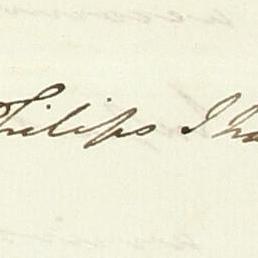 Philips I ha